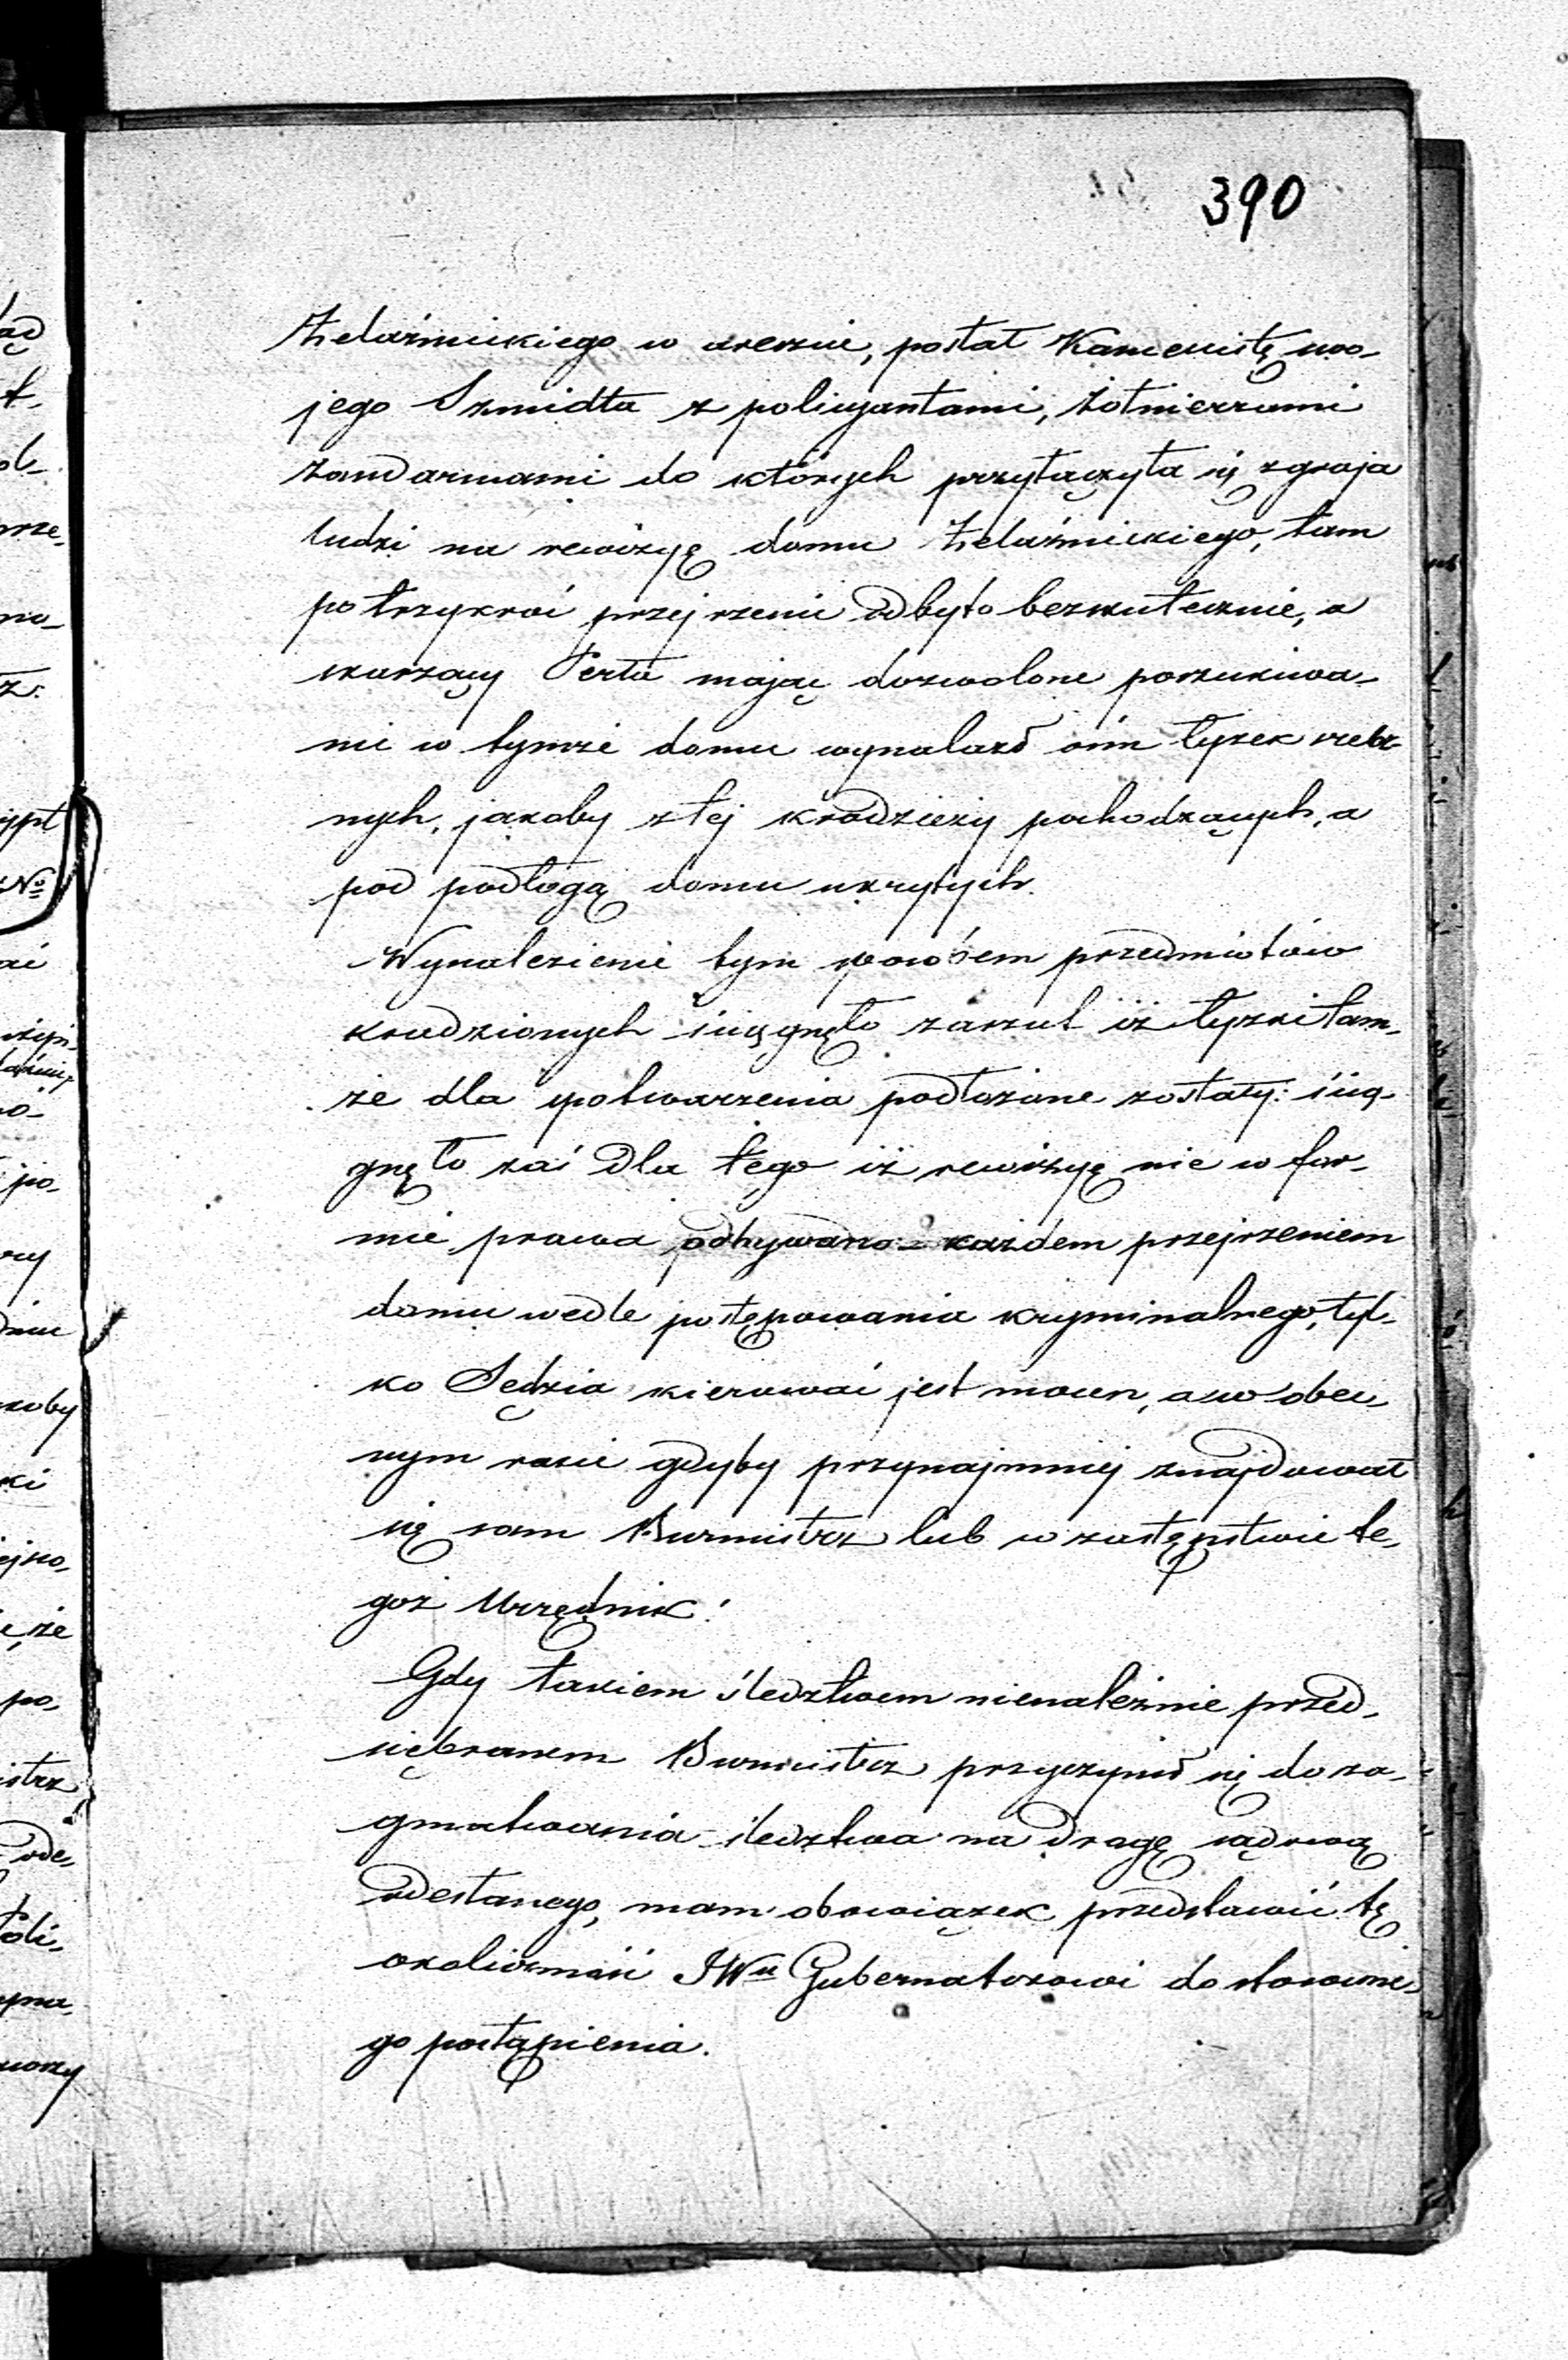 390
Żelaźnickiego w areszcie, posłał Kancelistę swo-
jego Szmidta z policyantami, żołnierzami
żandarmami do których przyłączyła się zgraja
ludzi na rewizyę domu Żelaźnickiego, tam
po trzykroć przejrzenie odbyto bezskutecznie, a
skarżący Perła mając dozwolone poszukiwa-
nie w tymże domu wynalazł ośm łyżek srebr-
nych, jakoby z tej kradzieży pochodzących, a
pod podłogą domu ukrytych.
Wynalezienie tym sposobem przedmiotów
kradzionych ściągnęło zarzut iż łyżki tam-
że dla spotwarzenia podłożone zostały: ścią-
gnęło zaś dla tego iż rewizyę nie w for-
mie prawa odbywano – każdem przejrzeniem
domu wedle postępowania kryminalnego, tyl-
ko Sędzia kierować jest mocen, a w obec-
nym razie gdyby przynajmniej znajdował
się sam Burmistrz lub w zastępstwie te-
goż Urzędnik!
Gdy takiem śledztwem nienależnie przed-
sięбranem Burmistrz przyczynił się do za-
gmatwania śledztwa na drogę sądową
odesłanego, mam obowiązek przedstawić tę
okoliczność JWu Gubernatorowi do stosowne-
go postąpienia.